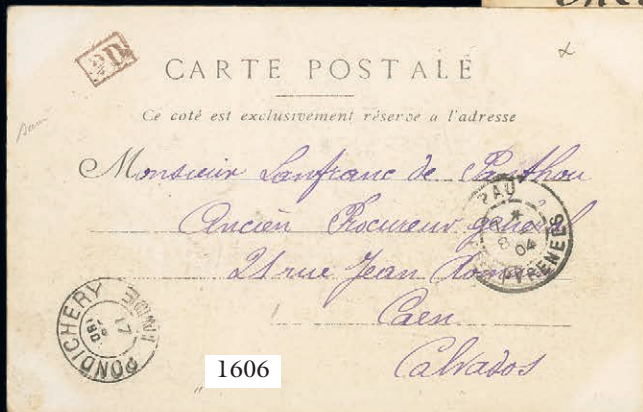 PD
CARTE POSTALE
Ce coté est exclusivement réservé a l'adresse
Monsieur Lanfranc de Panthou
Ancien Procureur général
21 rue Jean
Caen
Calvados
PAU
8
04
PYRENEES
PONDICHERY
INDE
17
1606